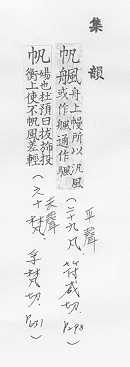 集韻
帆䑺舟上幔所以汎風
或作䑺通作颿
平聲
(二十九凡 符咸切. P298)
帆 也杜預曰拔斾投
衡上使不帆風差輕
去聲
十梵. 梵切. P631)